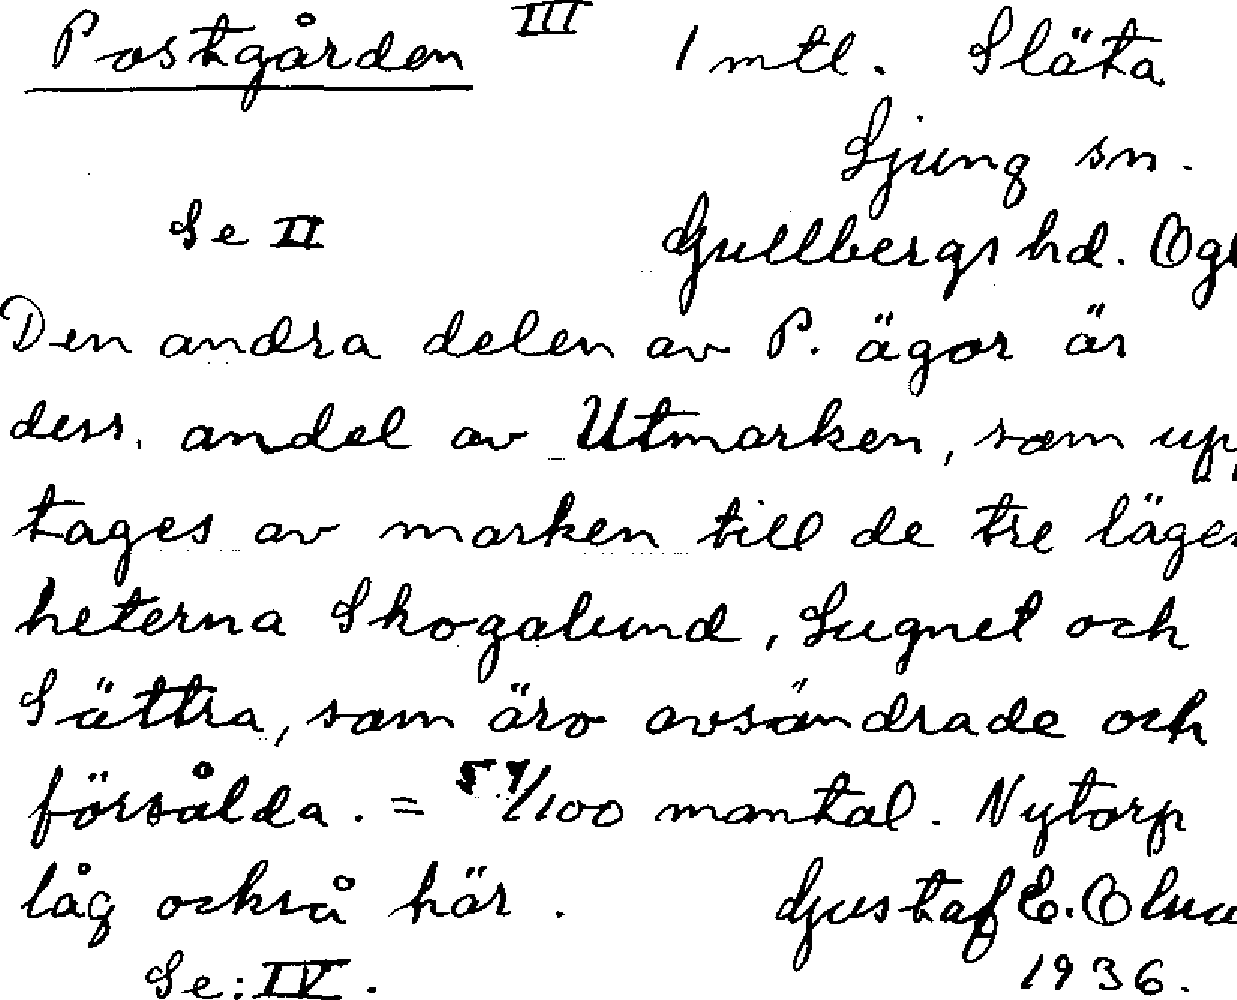 Postgården III 1 mtl. Släta
Ljung sn.
Se II Gullbergs hd. Ögl
Den andra delen av P. ägor är
dess. andel av Utmarken, som up
tages av marken till de tre lägen
heterna Skogalund, Lugnet och
Sättra, som äro avsöndrade och
försålda. = 57/100 mantal. Nytorp
låg också här. Gustaf E.
Se: IV. 1936.